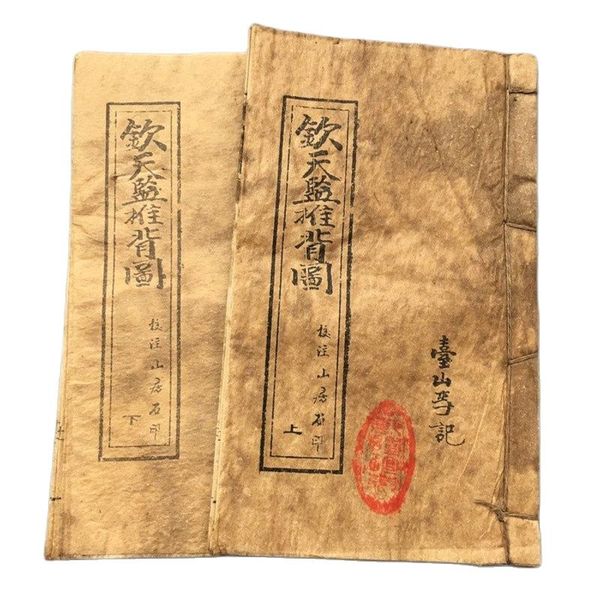 欽天監推背圖
校注山房石印
上
臺山氏記
欽天監推背圖
校注山房石印
下